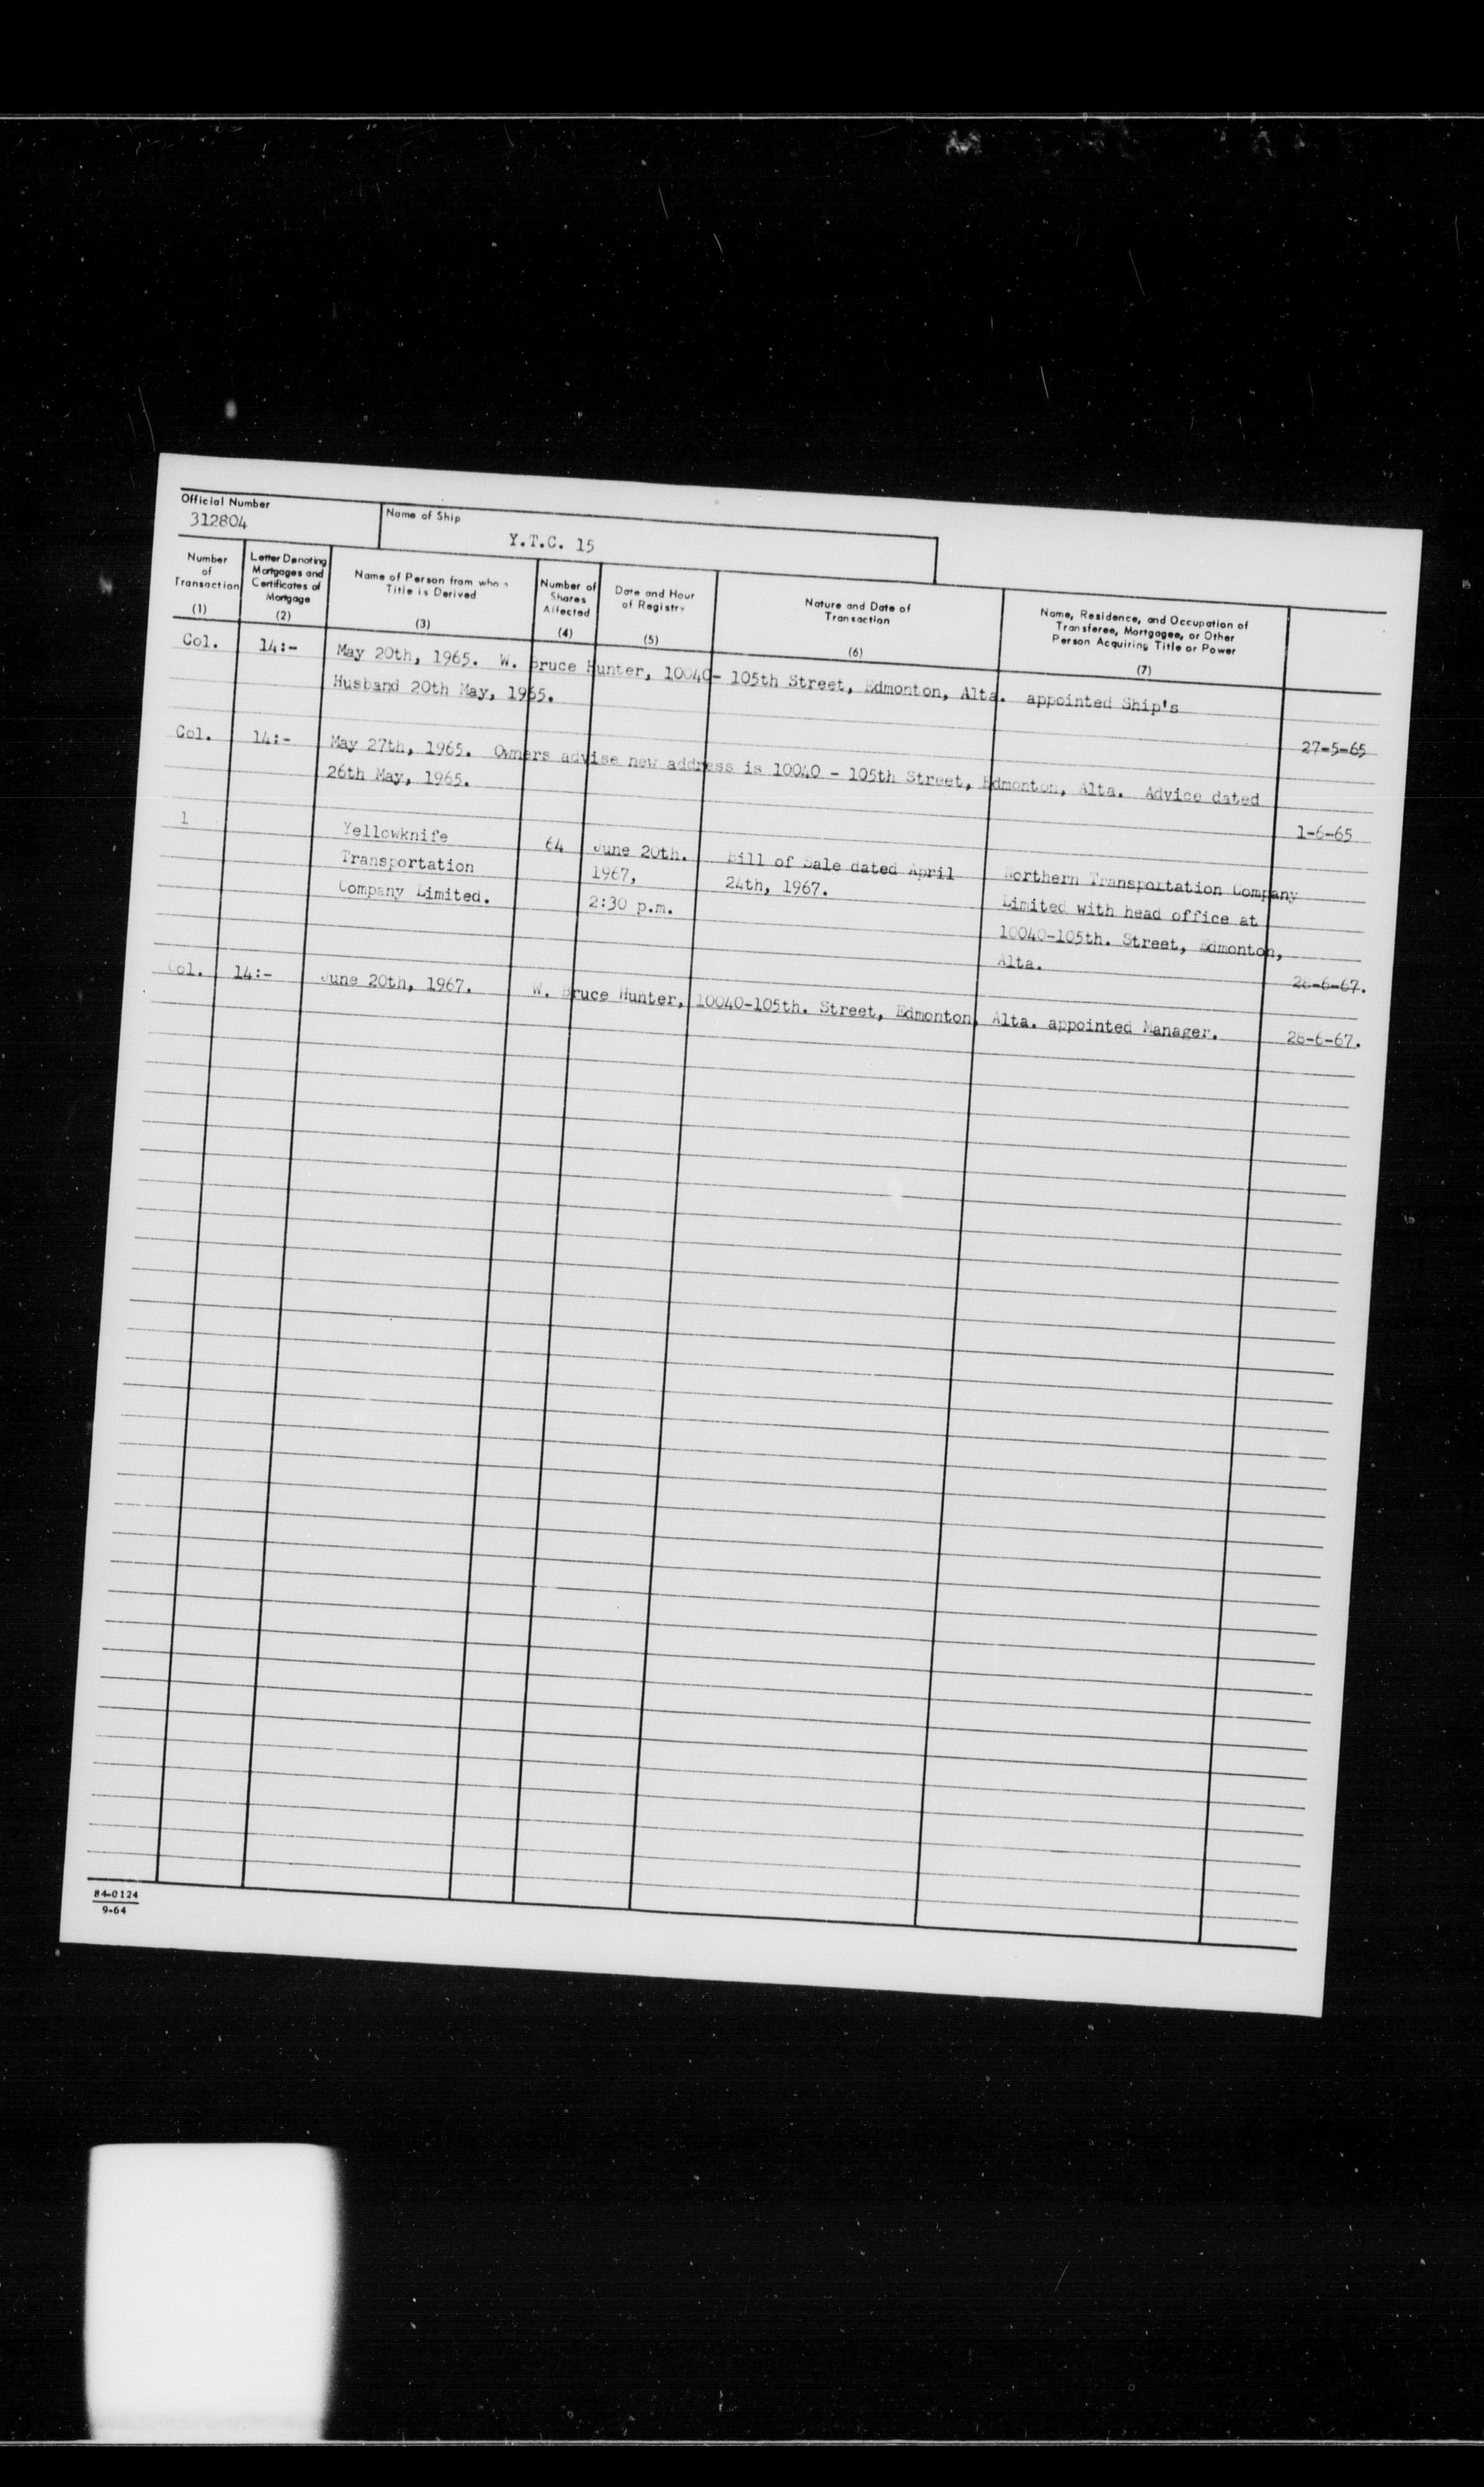 Official Number
312804
Name of Ship
Y.T.C. 15
Number
of
Transaction
(1)
Letter Denoting
Mortgages and
Certificates of
Mortgage
(2)
Name of Person from whom
Title is Derived
(3)
Number of
Shares
Affected
(4)
Date and Hour
of Registry
(5)
Nature and Date of
Transaction
(6)
Name, Residence, and Occupation of
Transferee, Mortgagee, or Other
Person Acquiring Title or Power
(7)
Col. 14:- May 20th, 1965. W. Bruce Hunter, 10040- 105th Street, Edmonton, Alta. appointed Ship's
Husband 20th May, 1965.
27-5-65
Col. 14:- May 27th, 1965. Owners advise new address is 10040 - 105th Street, Edmonton, Alta. Advice dated
26th May, 1965.
1-6-65
1
Yellowknife
Transportation
Company Limited.
64
June 20th.
1967,
2:30 p.m.
Bill of Sale dated April
24th, 1967.
Northern Transportation Company
Limited with head office at
10040-105th. Street, Edmonton,
Alta.
28-6-67.
Col. 14:- June 20th, 1967. W. Bruce Hunter, 10040-105th. Street, Edmonton, Alta. appointed Manager.
28-6-67.
84-0124
9-64